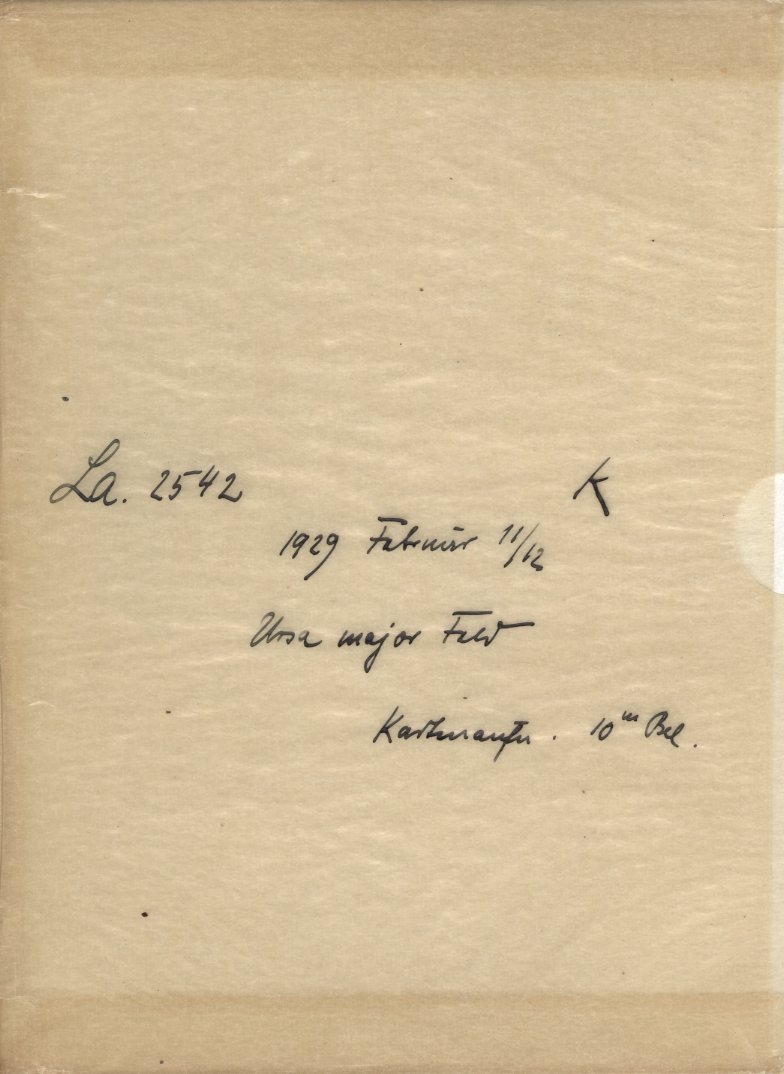 La. 2542 K
1929 Februar 11/12
Ursa major Feld
10m Bel.